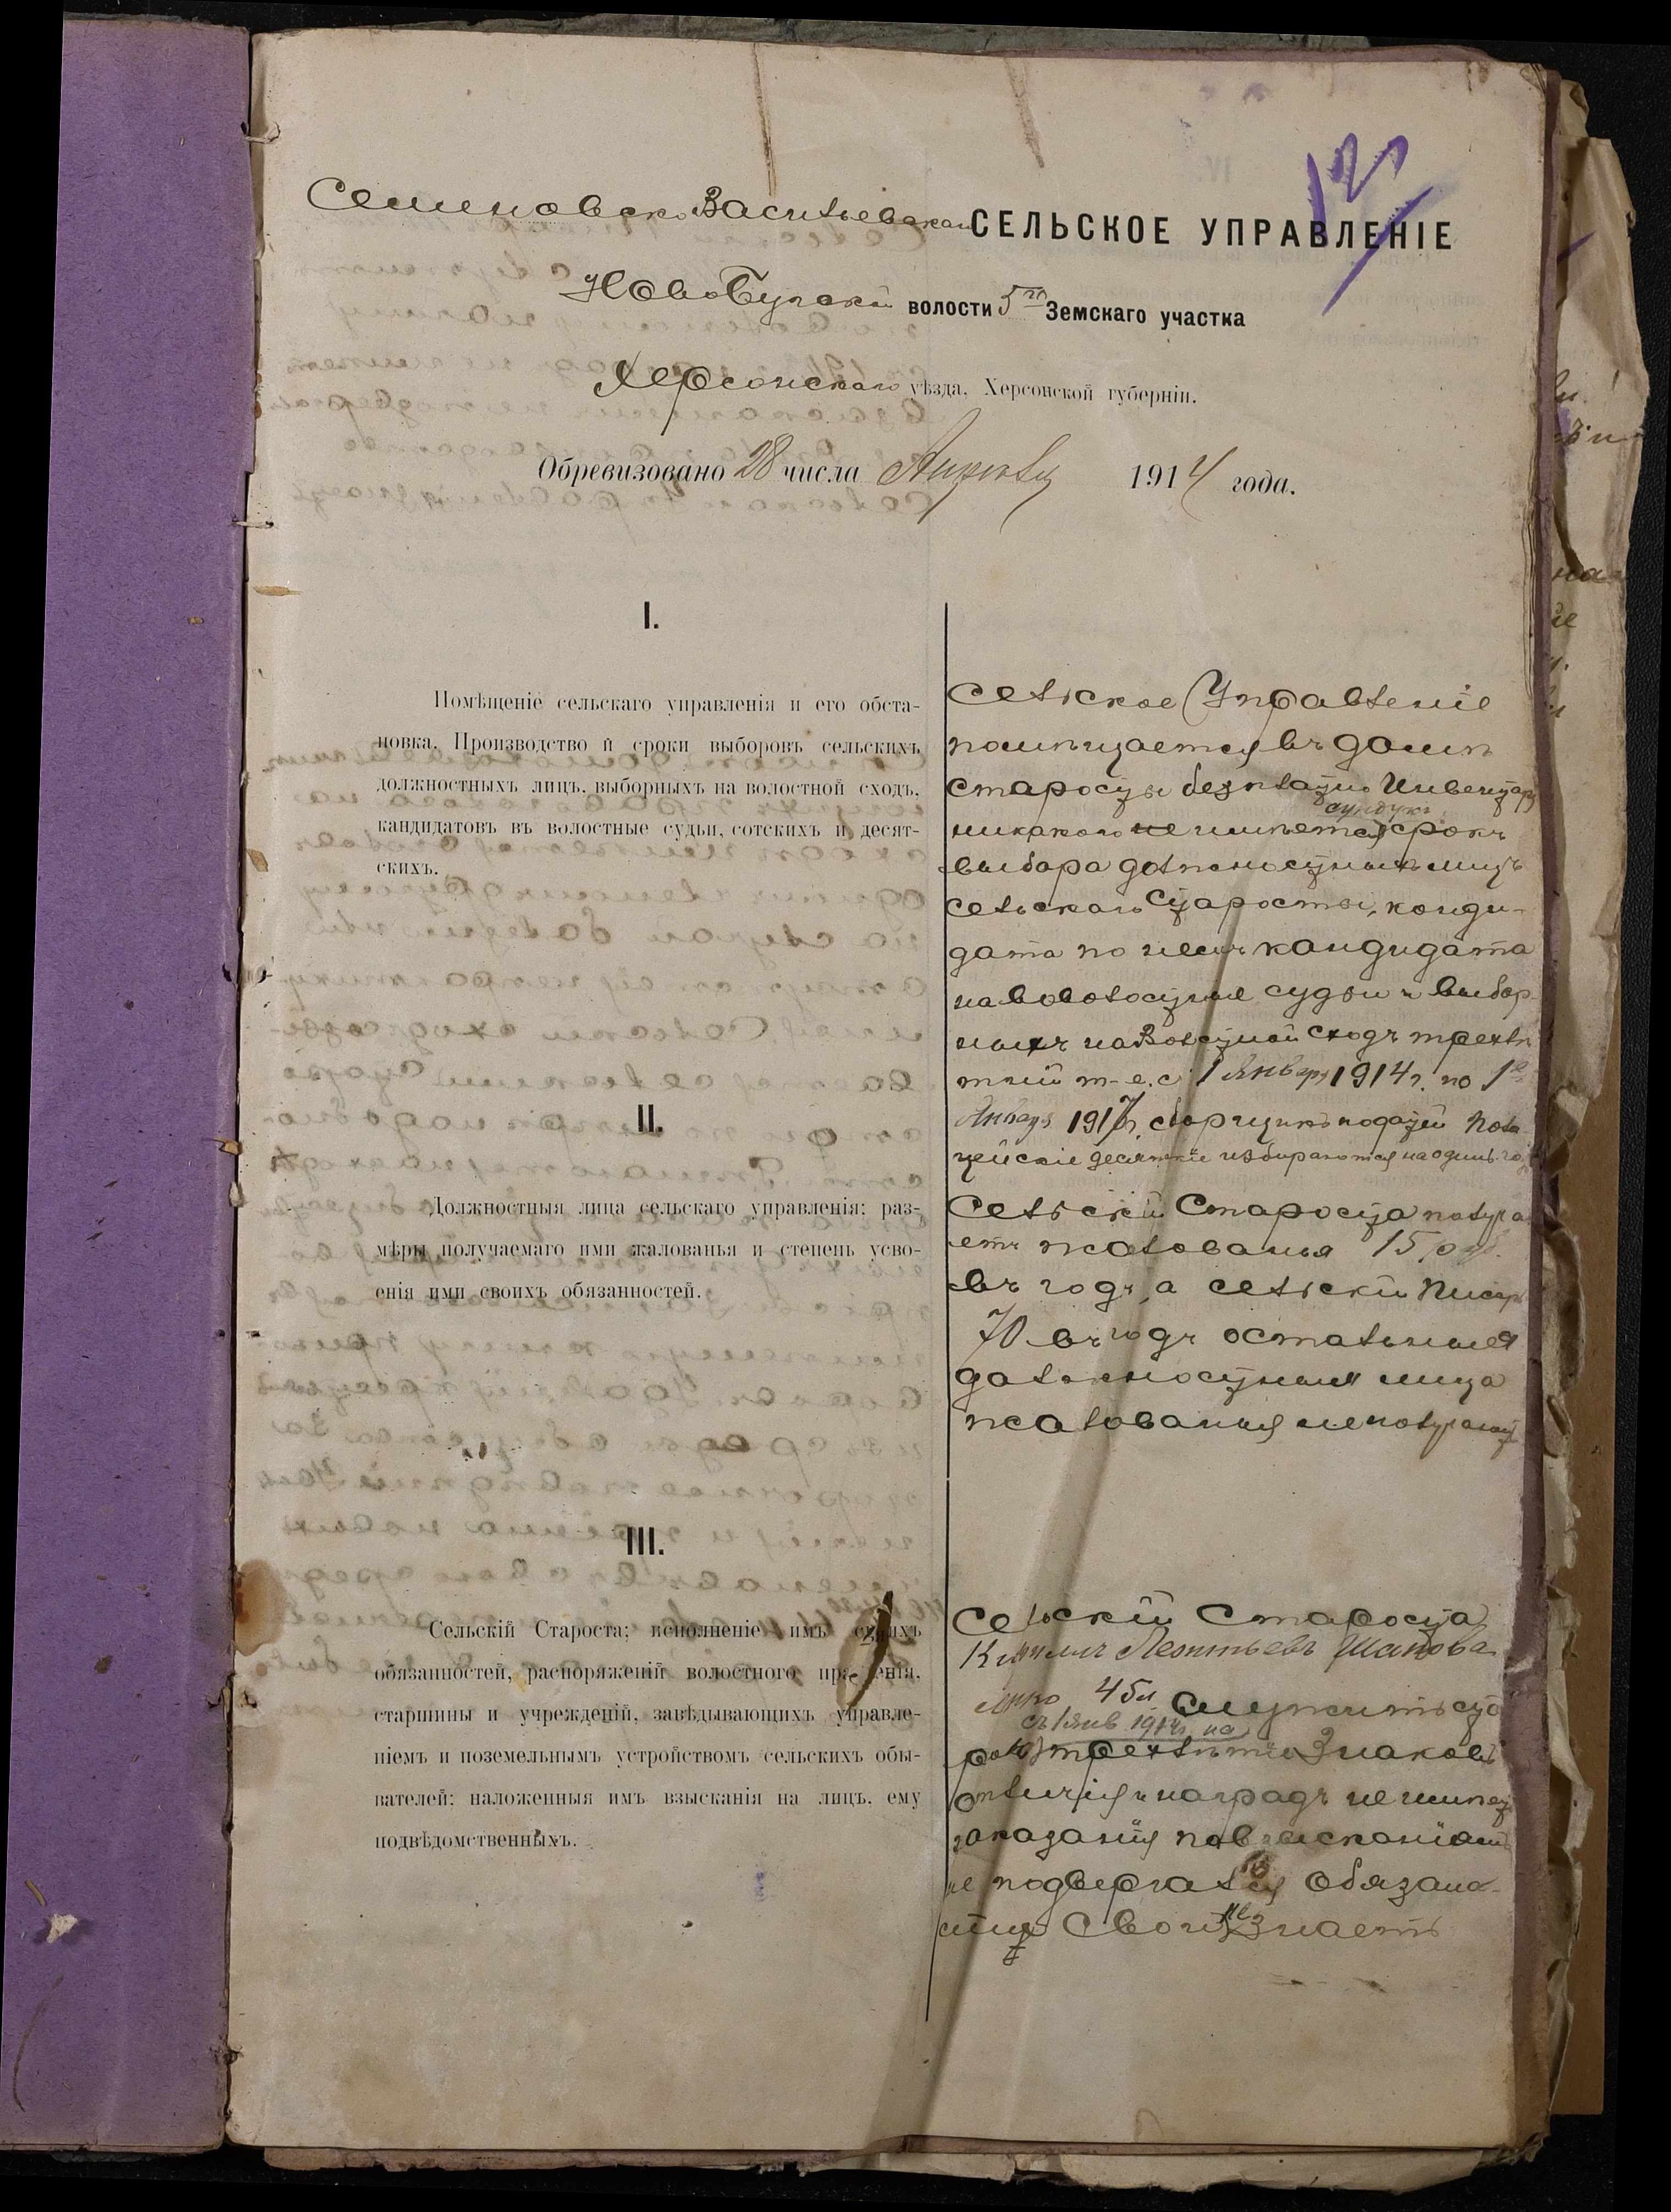 12
Семеновско Васильевское СЕЛЬСКОЕ УПРАВЛЕНІЕ
НовоБугской волости 5го Земскаго участка
Херсонскаго уѣзда, Херсонской губерніи.
Обревизовано 28 числа 1914 года.
I.
Помѣщеніе сельскаго управленія и его обста-
новка. Производство и сроки выборовъ сельскихъ
должностныхъ лицъ, выборныхъ на волостной сходъ,
кандидатовъ въ волостные судьи, сотскихъ и десят-
скихъ.
Сельское Управленіе
помѣщается въ домѣ
старосты безплатно Инвентаря
сундукъ
никакого не имѣется срокъ
выбора должностныхъ лицъ
сельскаго Старосты, конди-
дата по немъ кандидата
на волостные судьи и выбор-
ныхъ на Волостной Сходъ трехлѣ
тній т-е. с 1 Января 1914 г. по 1е
Января 1917 г. сборщикъ податей Поли
цейскіе десятскіе избираются на одинъ го
II.
Должностныя лица сельскаго управленія; раз-
мѣры получаемаго ими жалованья и степень усво-
енія ими своихъ обязанностей.
Сельскій Староста получа
етъ жалованья 15 руб.
въ годъ, а сельскій Писарь
70 въ годъ остальныя
должностныя лица
жалованья не получаютъ
III.
Сельскій Староста; исполненіе имъ своихъ
обязанностей, распоряженій волостного правленія,
старшины и учрежденій, завѣдывающихъ управле-
ніемъ и поземельнымъ устройствомъ сельскихъ обы-
вателей; наложенныя имъ взысканія на лицъ, ему
подвѣдомственныхъ.
Сельскій Староста
Кириллъ Леонтьевъ Шапова
45 л служитъ ста
съ 1 янв 1914 г. на
ростою трехлѣтіе Знаковъ
отличія и наградъ не имѣетъ
взысканіямъ
не подвергался Обязано-
сти свои знаетъ